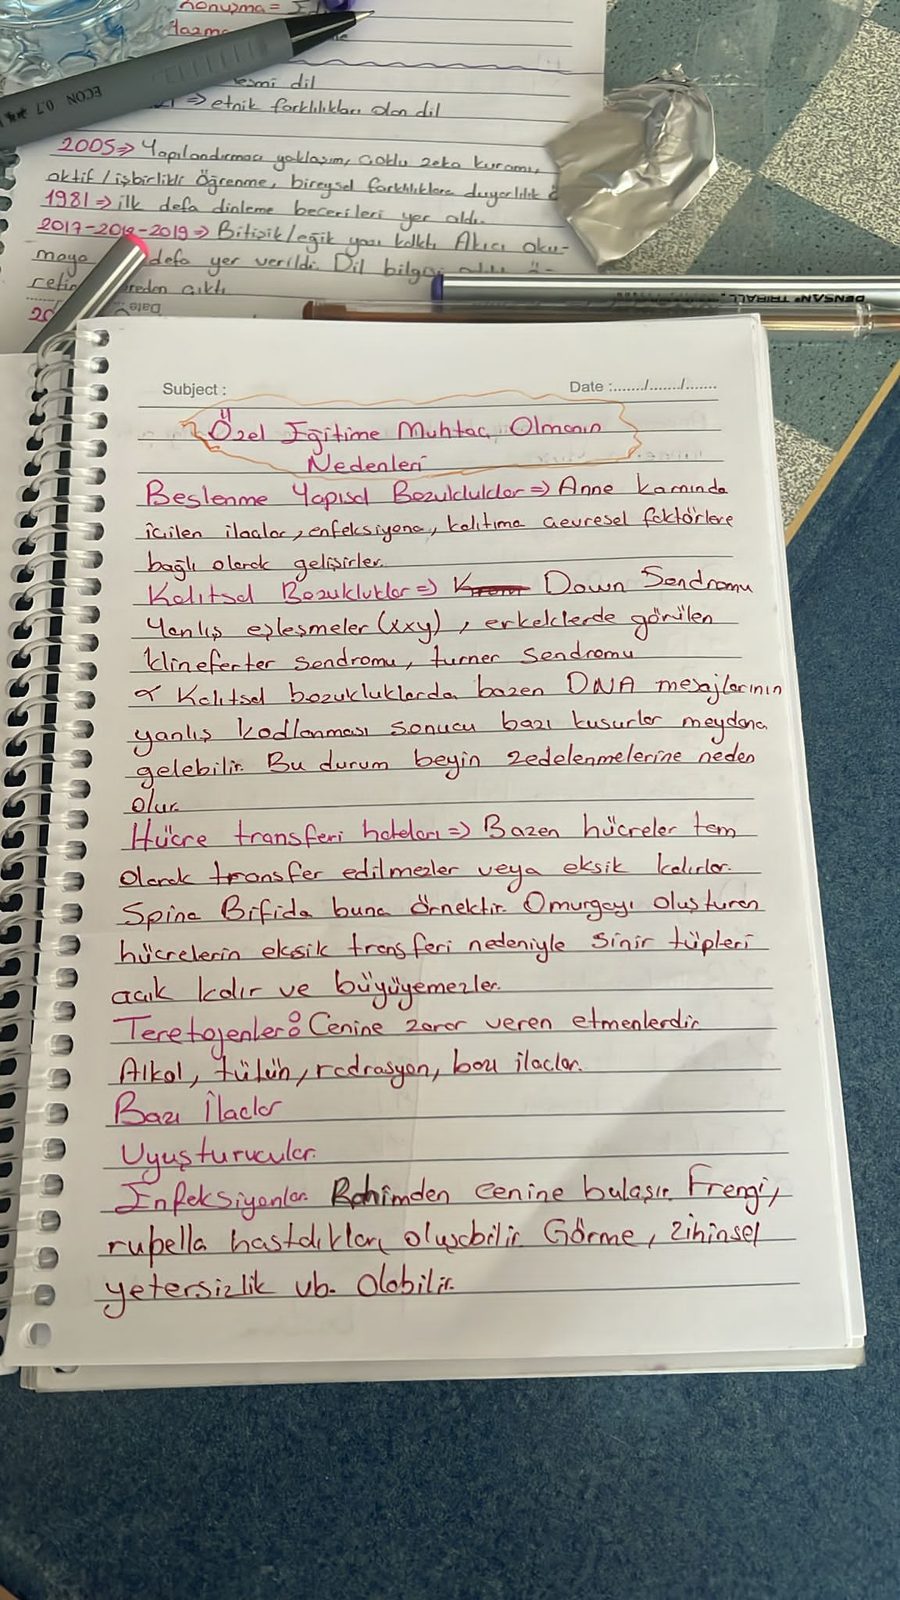 Konuşma =
Yazma
resmi dil
=> etnik farklılıkları olan dil
2005=> Yapılandırmacı yaklaşım, çoklu zeka kuramı,
aktif/işbirlikli öğrenme, bireysel farklılıklara duyarlılık
1981=> ilk defa dinleme becerileri yer aldı.
2017-2018-2019=> Bitişik/eğik yazı kalktı. Akıcı oku-
maya defa yer verildi. Dil bilgisi
reden çıktı
20
Date
ECON 0.7
PENSAN TRIBALL
Subject :
Date :......./......./.......
Özel Eğitime Muhtaç Olmanın
Nedenleri
Beslenme Yapısal Bozukluklar=> Anne karnında
içilen ilaçlar, enfeksiyona, kalıtıma çevresel faktörlere
bağlı olarak gelişirler.
Kalıtsal Bozukluklar=> Down Sendromu
Yanlış eşleşmeler (xxy), erkeklerde görülen
klineferter sendromu, turner sendromu
* Kalıtsal bozukluklarda bazen DNA mesajlarının
yanlış kodlanması sonucu bazı kusurlar meydana
gelebilir. Bu durum beyin zedelenmelerine neden
olur.
Hücre transferi hataları=> Bazen hücreler tam
olarak transfer edilmezler veya eksik kalırlar.
Spina Bifida buna örnektir. Omurgayı oluşturan
hücrelerin eksik transferi nedeniyle sinir tüpleri
açık kalır ve büyüyemezler.
Teretojenler: Cenine zarar veren etmenlerdir.
Alkol, tütün, radrasyon, bazı ilaçlar.
Bazı İlaçlar
Uyuşturucular.
Enfeksiyonlar. Rahimden cenine bulaşır. Frengi,
rubella hastalıkları oluşabilir. Görme, zihinsel
yetersizlik vb. Olabilir.